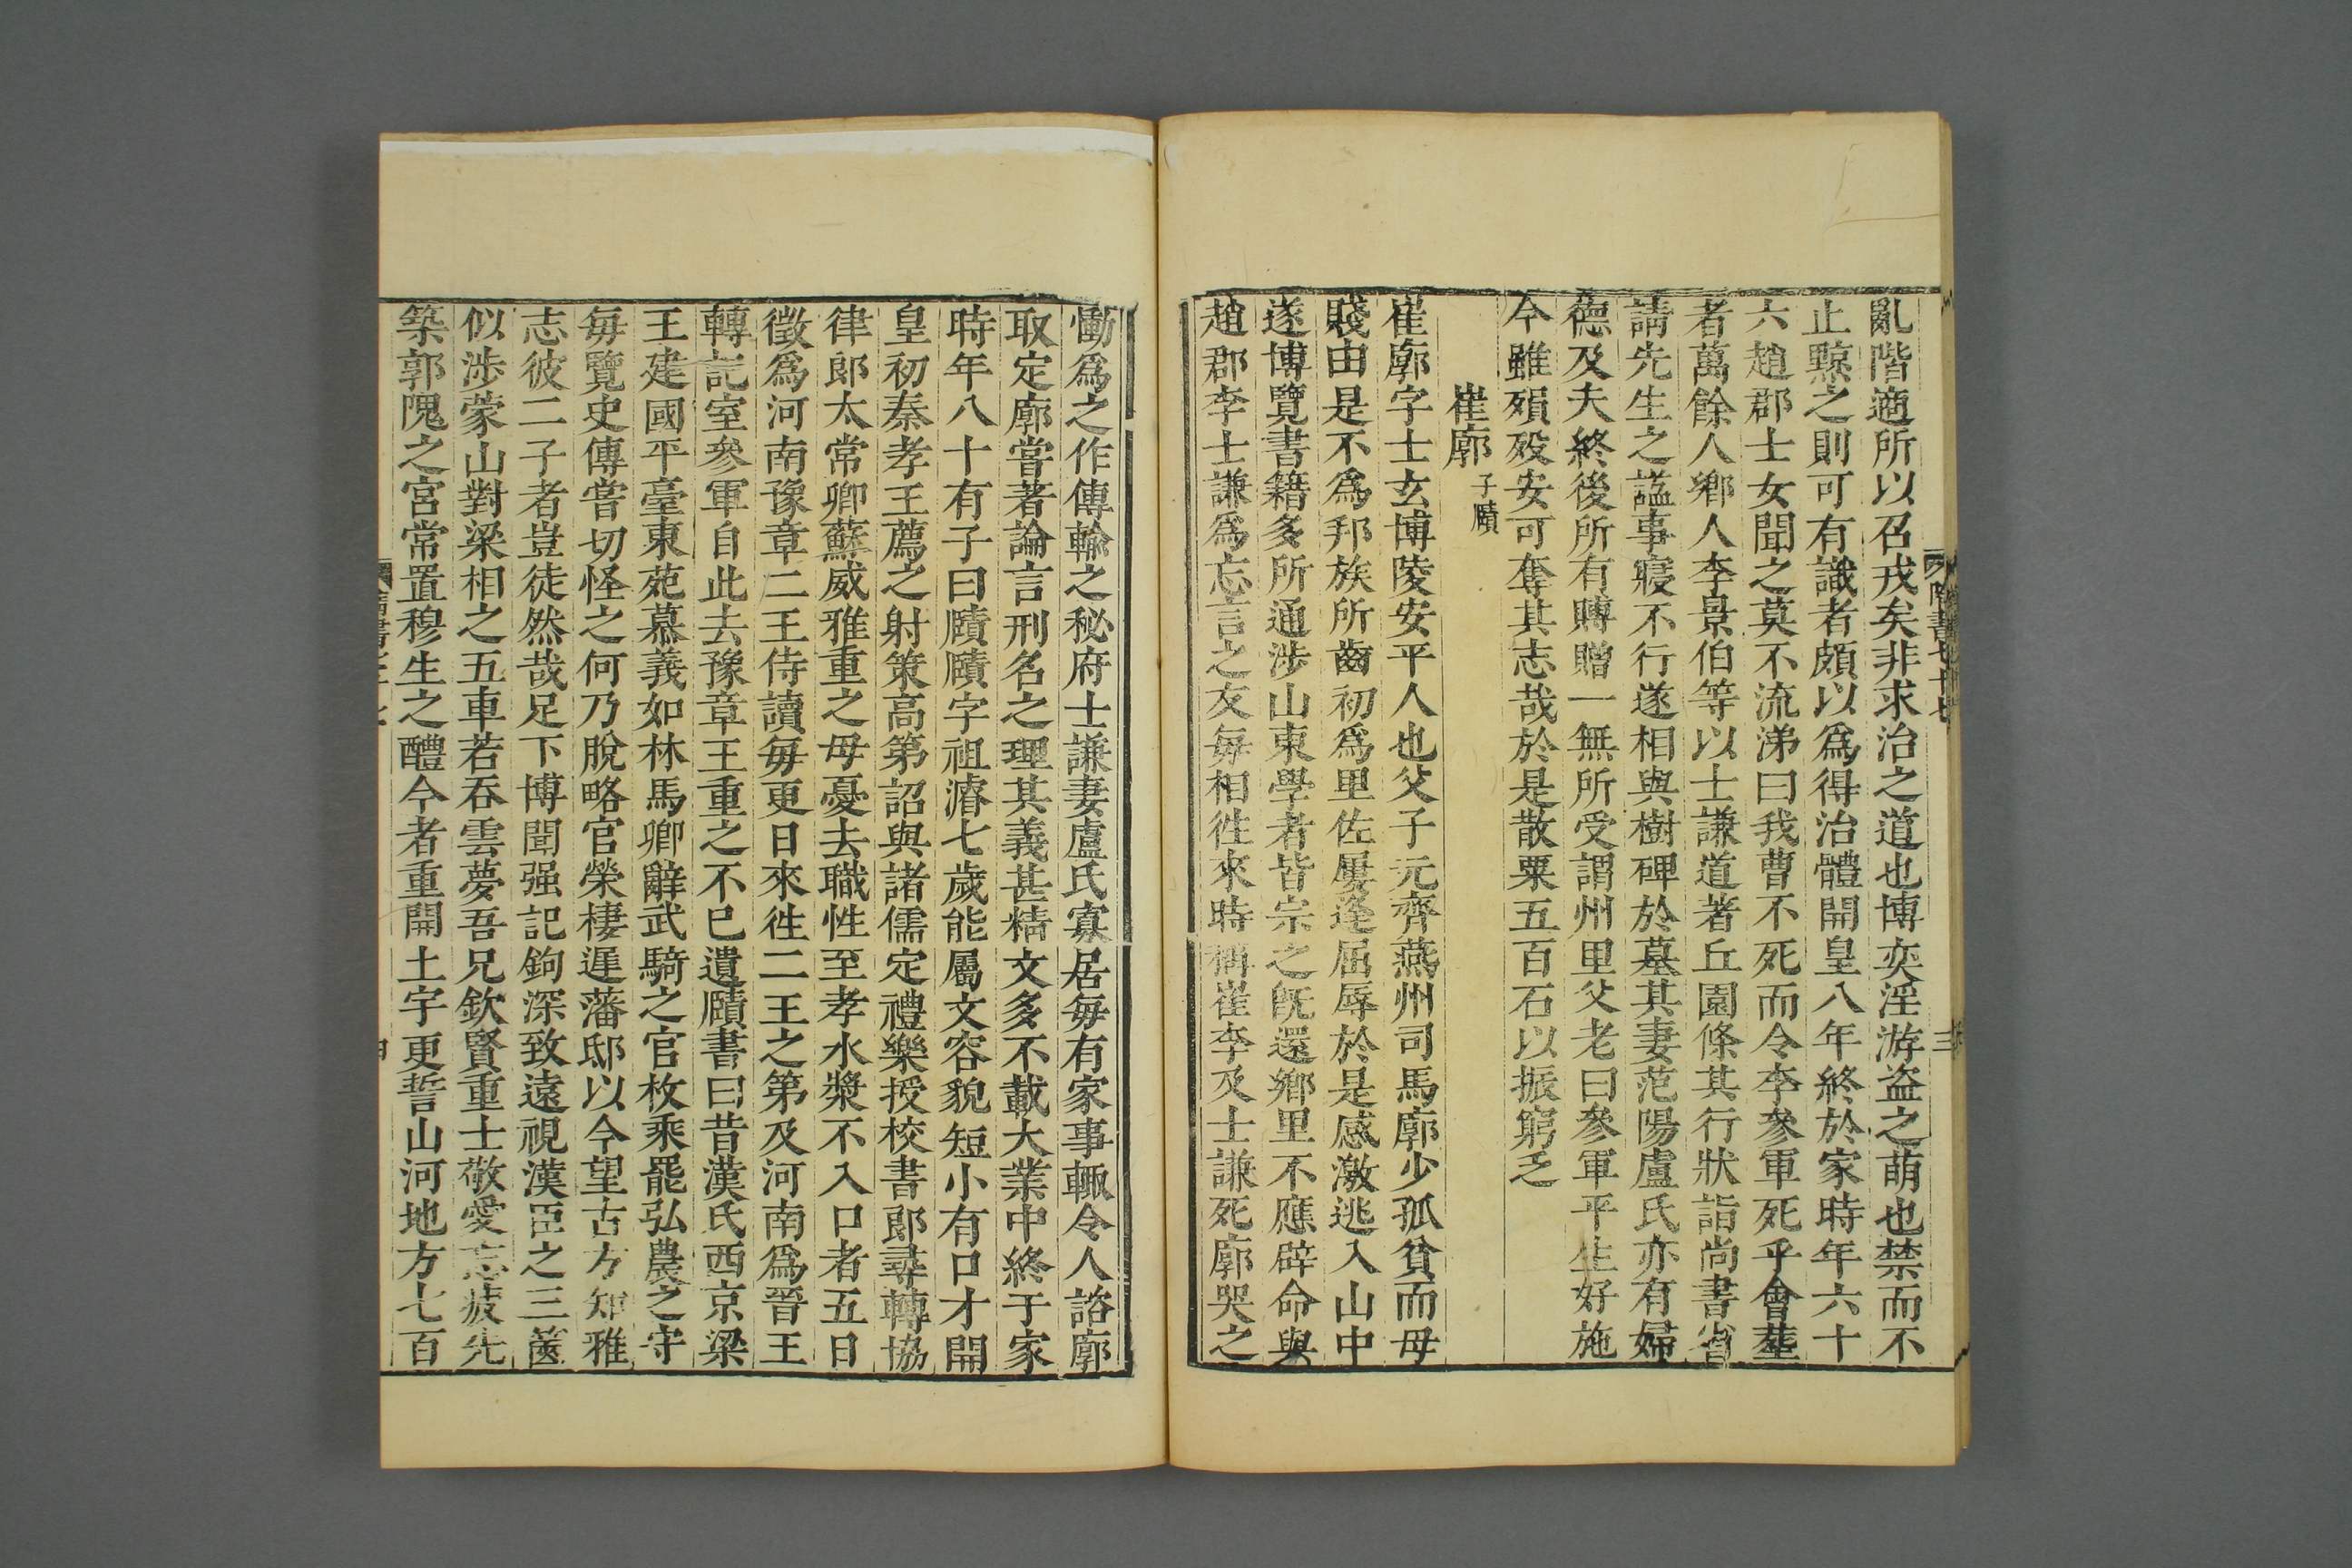 亂階適所以召戎矣非求治之道也博奕淫游盗之萌也禁而不
止黥之則可有識者頗以爲得治體開皇八年終於家時年六十
六趙郡士女聞之莫不流涕曰我曹不死而令李參軍死乎會葬
者萬餘人鄉人李景伯等以士謙道著丘園條其行狀詣尚書省
請先生之謚事寢不行遂相與樹碑於墓其妻范陽盧氏亦有婦
德及夫終後所有賻贈一無所受謂州里父老曰參軍平生好施
今雖殞歿安可奪其志哉於是散粟五百石以振窮乏
崔廓子賾
崔廓字士玄博陵安平人也父子元齊燕州司馬廓少孤貧而母
賤由是不爲邦族所齒初爲里佐屢逢屈辱於是感激逃入山中
遂博覽書籍多所通涉山東學者皆宗之既還鄉里不應辟命與
趙郡李士謙爲忘言之友每相徃來時稱崔李及士謙死廓哭之
隋書七十七
三
慟爲之作傳輸之秘府士謙妻盧氏寡居每有家事輒令人諮廓
取定廓嘗著論言刑名之理其義甚精文多不載大業中終于家
時年八十有子曰賾賾字祖濬七歲能屬文容貌短小有口才開
皇初秦孝王薦之射策高第詔與諸儒定禮樂授校書郎尋轉協
律郎太常卿蘇威雅重之母憂去職性至孝水漿不入口者五日
徵爲河南豫章二王侍讀每更日來徃二王之第及河南爲晉王
轉記室參軍自此去豫章王重之不已遺賾書曰昔漢氏西京梁
王建國平臺東苑慕義如林馬卿辭武騎之官枚乘罷弘農之守
每覽史傳嘗切怪之何乃脫略官榮棲遲藩邸以今望古方知雅
志彼二子者豈徒然哉足下博聞强記鉤深致遠視漢臣之三篋
似涉蒙山對梁相之五車若吞雲夢吾兄欽賢重士敬愛忘疲先
築郭隗之宮常置穆生之醴今者重開土宇更誓山河地方七百